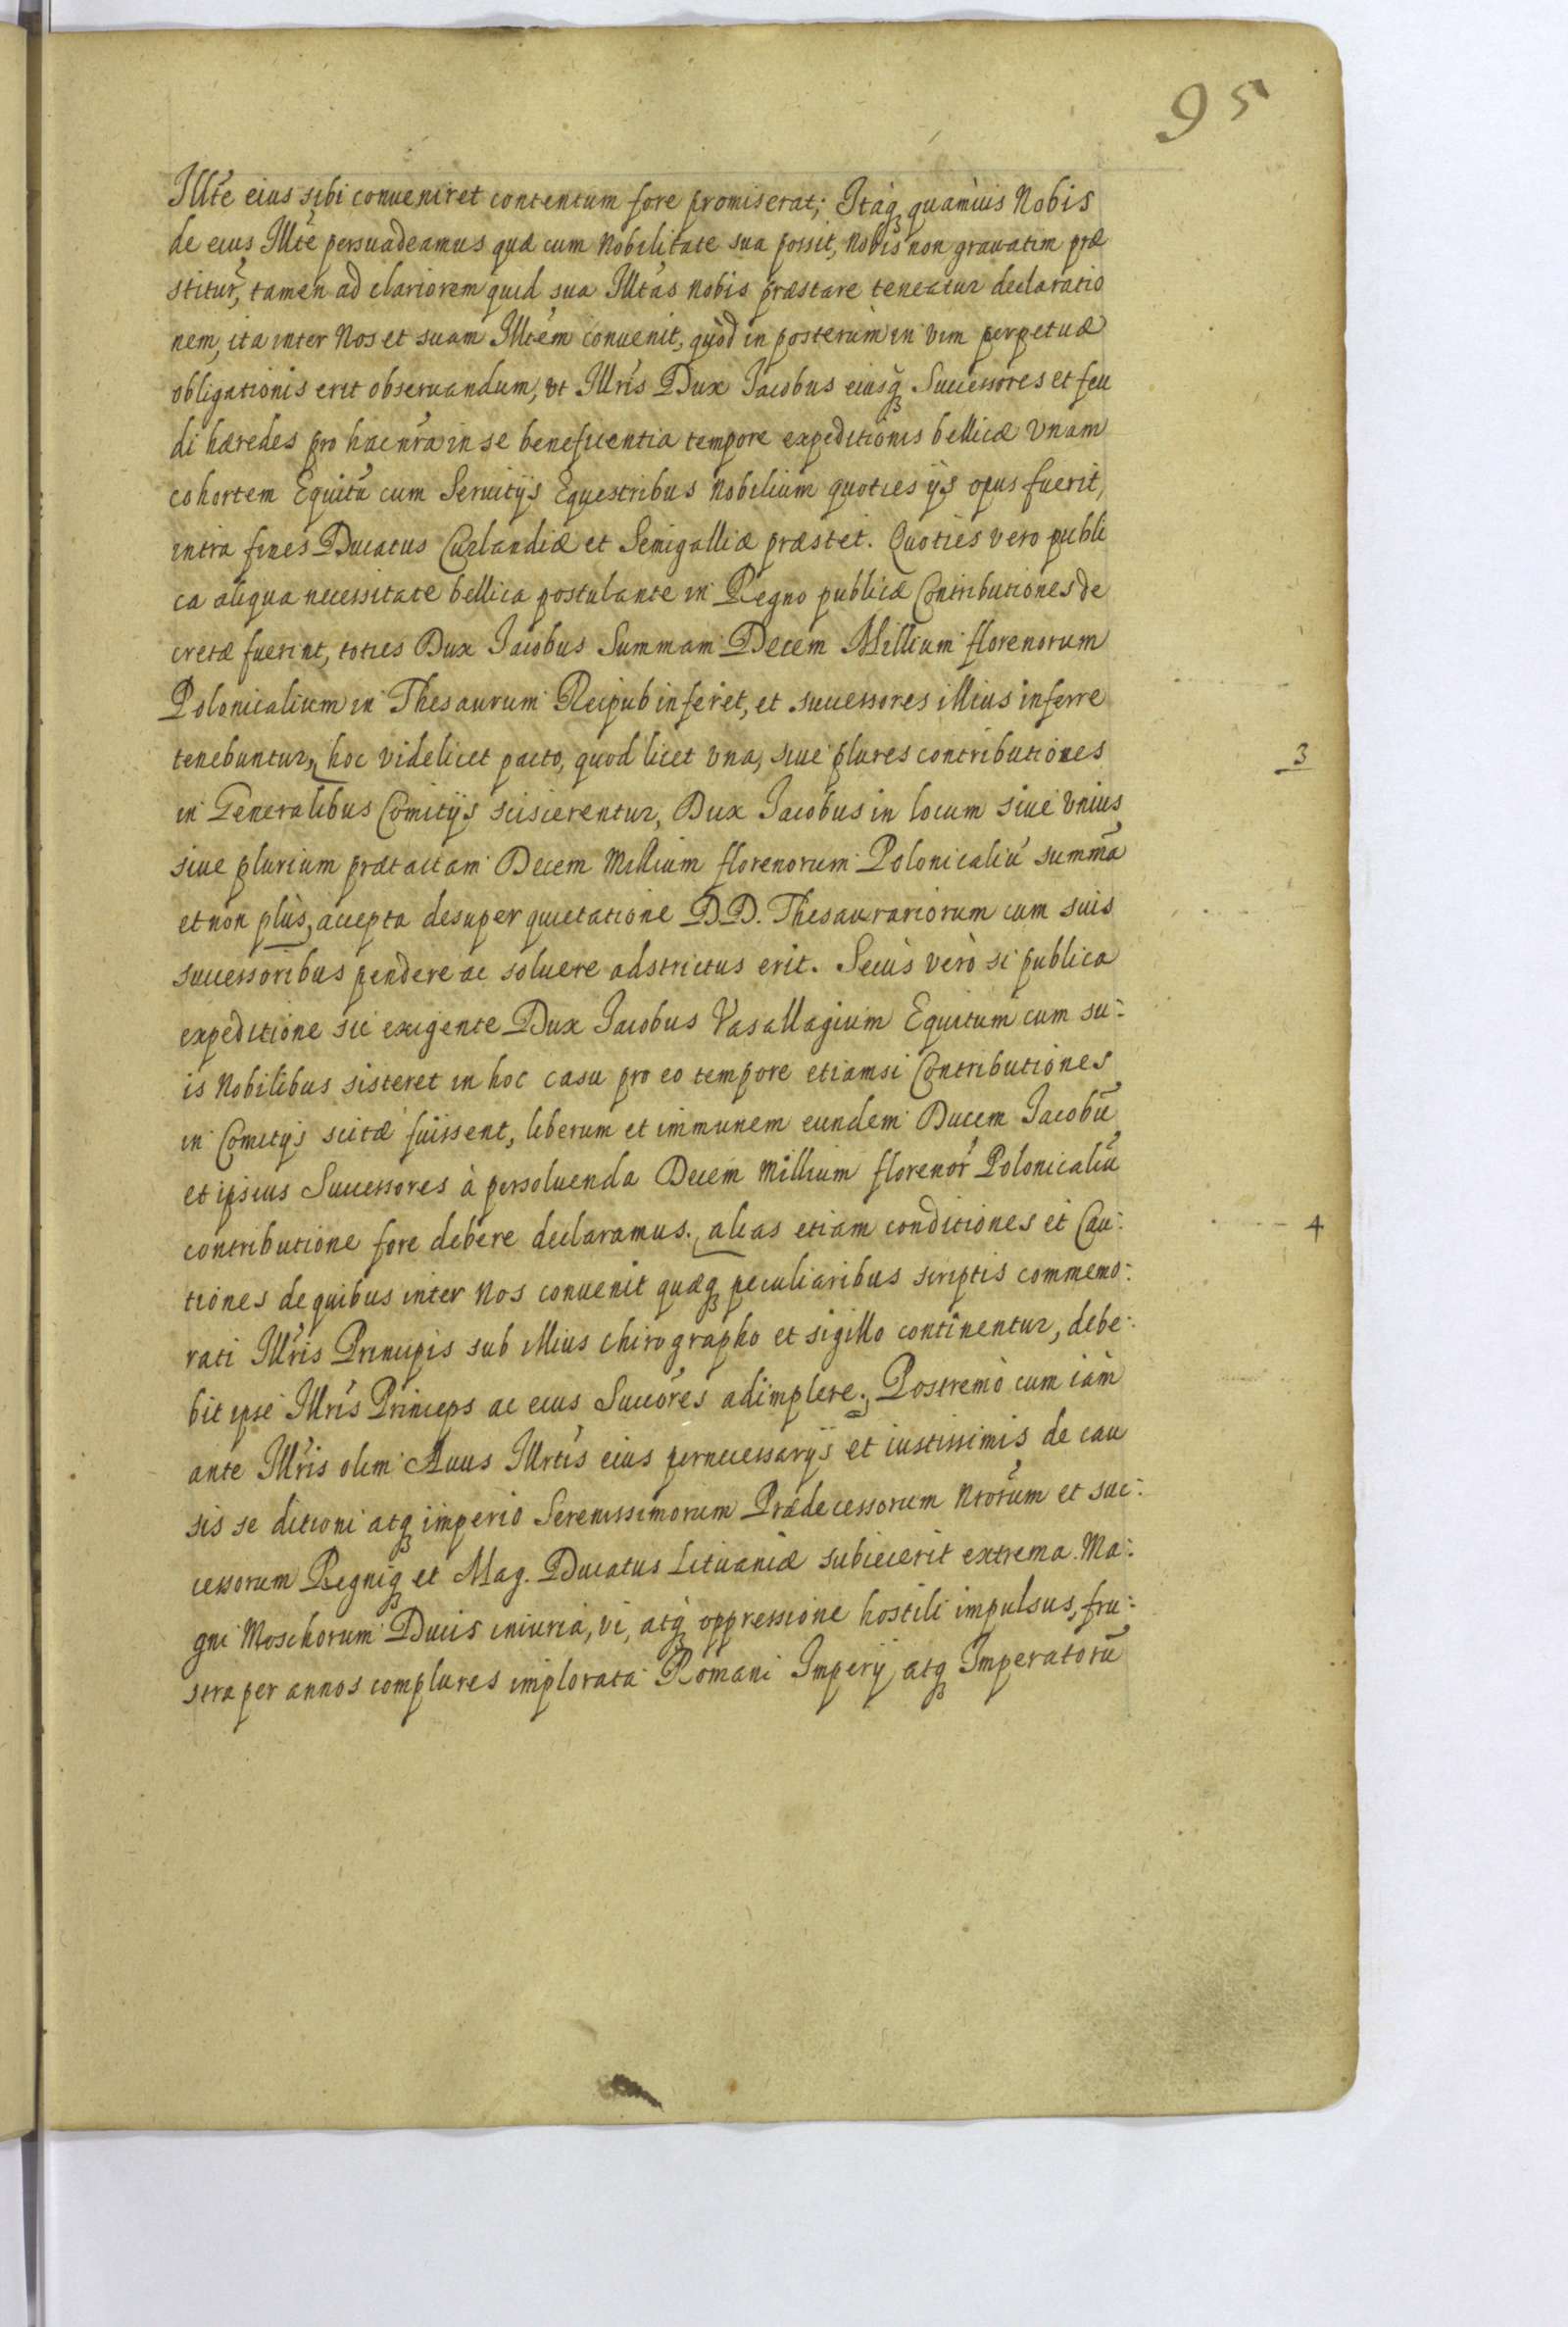 95
Illte eius sibi conueniret contentum fore promiserat; Itaq quamuis Nobis
de eius Illte persuadeamus quæ cum Nobilitate sua possit, Nobis non grauatim præ
stitur, tamen ad clariorem quid sua Illtas Nobis præstare teneatur declaratio
nem, ita inter Nos et suam Illtem conuenit, quòd in posterùm in vim perpetuæ
obligationis erit obseruandum, vt Illris Dux Iacobus eiusq Successores et feu
di hæredes pro hac nra in se beneficentia tempore expeditionis bellicæ Vnam
cohortem Equitũ cum Seruitijs Equestribus Nobilium quoties ijs opus fuerit,
intra fines Ducatus Curlandiæ et Semigalliæ præstet. Quoties vero publi
ca aliqua necessitate bellica postulante in Regno publicæ Contributiones de
cretæ fuerint, toties Dux Iacobus Summam Decem Millium florenorum
Polonicalium in Thesaurum Reipub inferet, et successores illius inferre
tenebuntur, hoc videlicet pacto, quod licet vna, siue plures contributiones 3
in Generalibus Comitijs sciscerentur, Dux Iacobus in locum siue Vnius,
siue plurium prætactam Decem Millium florenorum Polonicaliũ summã
et non plùs, accepta desuper quietatione D.D. Thesaurariorum cum suis
successoribus pendere ac soluere adstrictus erit. Secùs verò si publica
expeditione sic exigente Dux Iacobus Vasallagium Equitum cum su:
is Nobilibus sisteret in hoc casu pro eo tempore etiamsi Contributiones
in Comitijs scitæ fuissent, liberum et immunem eundem Ducem Iacobũ
et ipsius Successores à persoluenda Decem Millium florenor Polonicaliũ
contributione fore debere declaramus. alias etiam conditiones et Cau: 4
tiones de quibus inter Nos conuenit quæq peculiaribus scriptis commemo:
rati Illris Principis sub illius chirographo et sigillo continentur, debe:
bit ipse Illris Princeps ac eius Succores adimplere. Postremò cum iàm
ante Illris olim Auus Illrtis eius pernecessarijs et iustissimis de cau
sis se ditioni atq imperio Serenissimorum Prædecessorum Nrorum et suc:
cessorum Regniq et Mag. Ducatus Lituaniæ subiecerit extrema Ma:
gni Moschorum Ducis iniuria, vi, atq oppressione hostili impulsus, fru:
stra per annos complures implorata Romani Imperij atq Imperatorũ